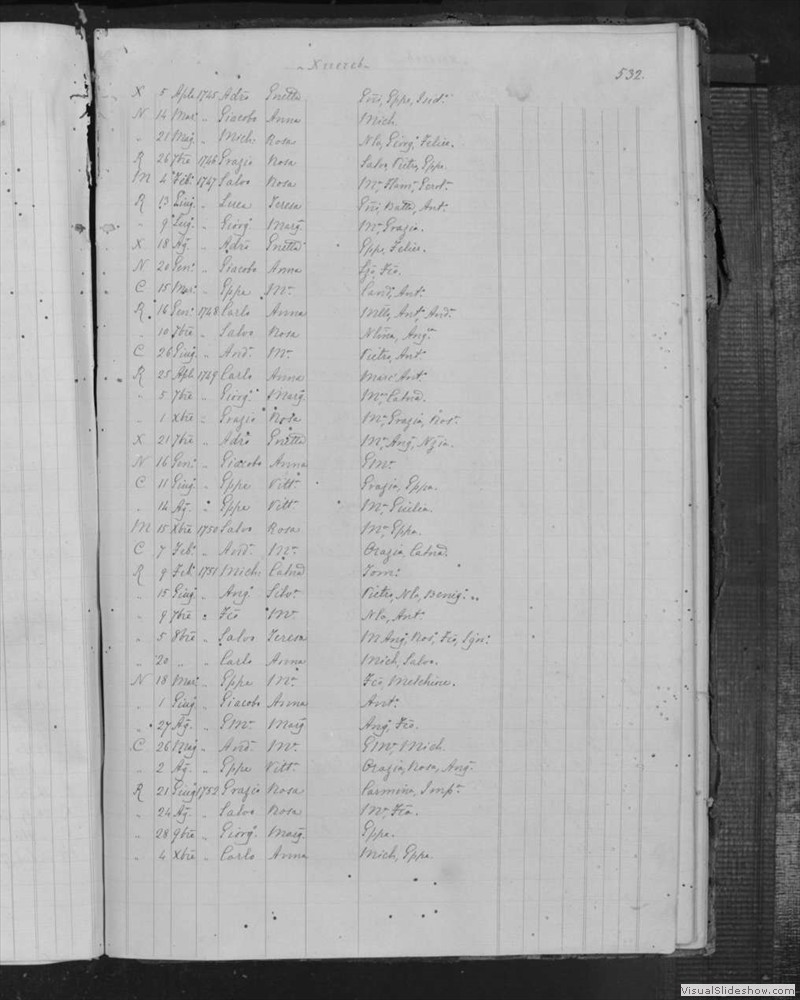 Xerereb
532.
X 5 Aple 1745 Adrõ Enetta Gio, Eppa, Isid.
N 14 Mar. " Giacobo Anna Mich.
" 21 Mag. " Mich. Rosa Nla, Giorg. Felice.
R 26 7bre 1746 Grazio Rosa Salva, Pietro, Eppa.
M 4 Feb. 1747 Salvo Rosa Mª
R 13 Giug. " Luca Teresa Gio Batta, Ant.
" 9 Lug. " Giorg. Marg. Mª Grazia.
X 18 Ag. " Adrõ Enetta Eppe, Felice.
N 20 Gen. " Giacobo Anna
C 15 Mar. " Eppa Mª Cand. Ant.
R 16 Gen. 1748 Carlo Anna Ant.
" 10 7bre " Salvo Rosa Ang.
C 26 Giug. " And. Mª Pietro, Ant.
R 25 Aple 1749 Carlo Anna Ant.
" 5 7bre " Giorg. Marg. Mª Catnd.
" 1 Xbre " Grazio Rosa Mª Grazia, Ros.
X 21 7bre " Adrõ Enetta Mª Ang. Nzia.
N 16 Gen. " Giacobo Anna GMª
C 11 Giug. " Eppe Vitt. Grazia, Eppa.
" 14 Ag. " Eppe Vitt. Mª Giulia.
M 15 Xbre 1750 Salvo Rosa Mª Eppa.
C 7 Feb. " And. Mª Orazia, Catnd.
R 9 Feb. 1751 Mich. Catnd Tom.
" 15 Giug. " Ang. Silv. Pietro, Nla, Benig. "
" 9 7bre " Fco Mª Nla, Ant.
" 5 8bre " Salvo Teresa M Ang. Ros. Fco, Ign.
" 20 " " Carlo Anna Mich. Salvo.
N 18 Mar. " Eppa Mª Fco, Melchior.
" 1 Giug. " Giacobo Anna Ant.
" 27 Ag. " GMª Marg. Ang. Fco.
C 26 Mag. " And. Mª GMª Mich.
" 2 Ag. " Eppe Vitt. Orazia, Rosa, Ang.
R 21 Giug. 1752 Grazio Rosa Carmina,
" 24 Ag. " Salvo Rosa Mª Fca.
" 28 9bre " Giorg. Marg. Eppa.
" 4 Xbre " Carlo Anna Mich. Eppa
VisualSlideshow.com